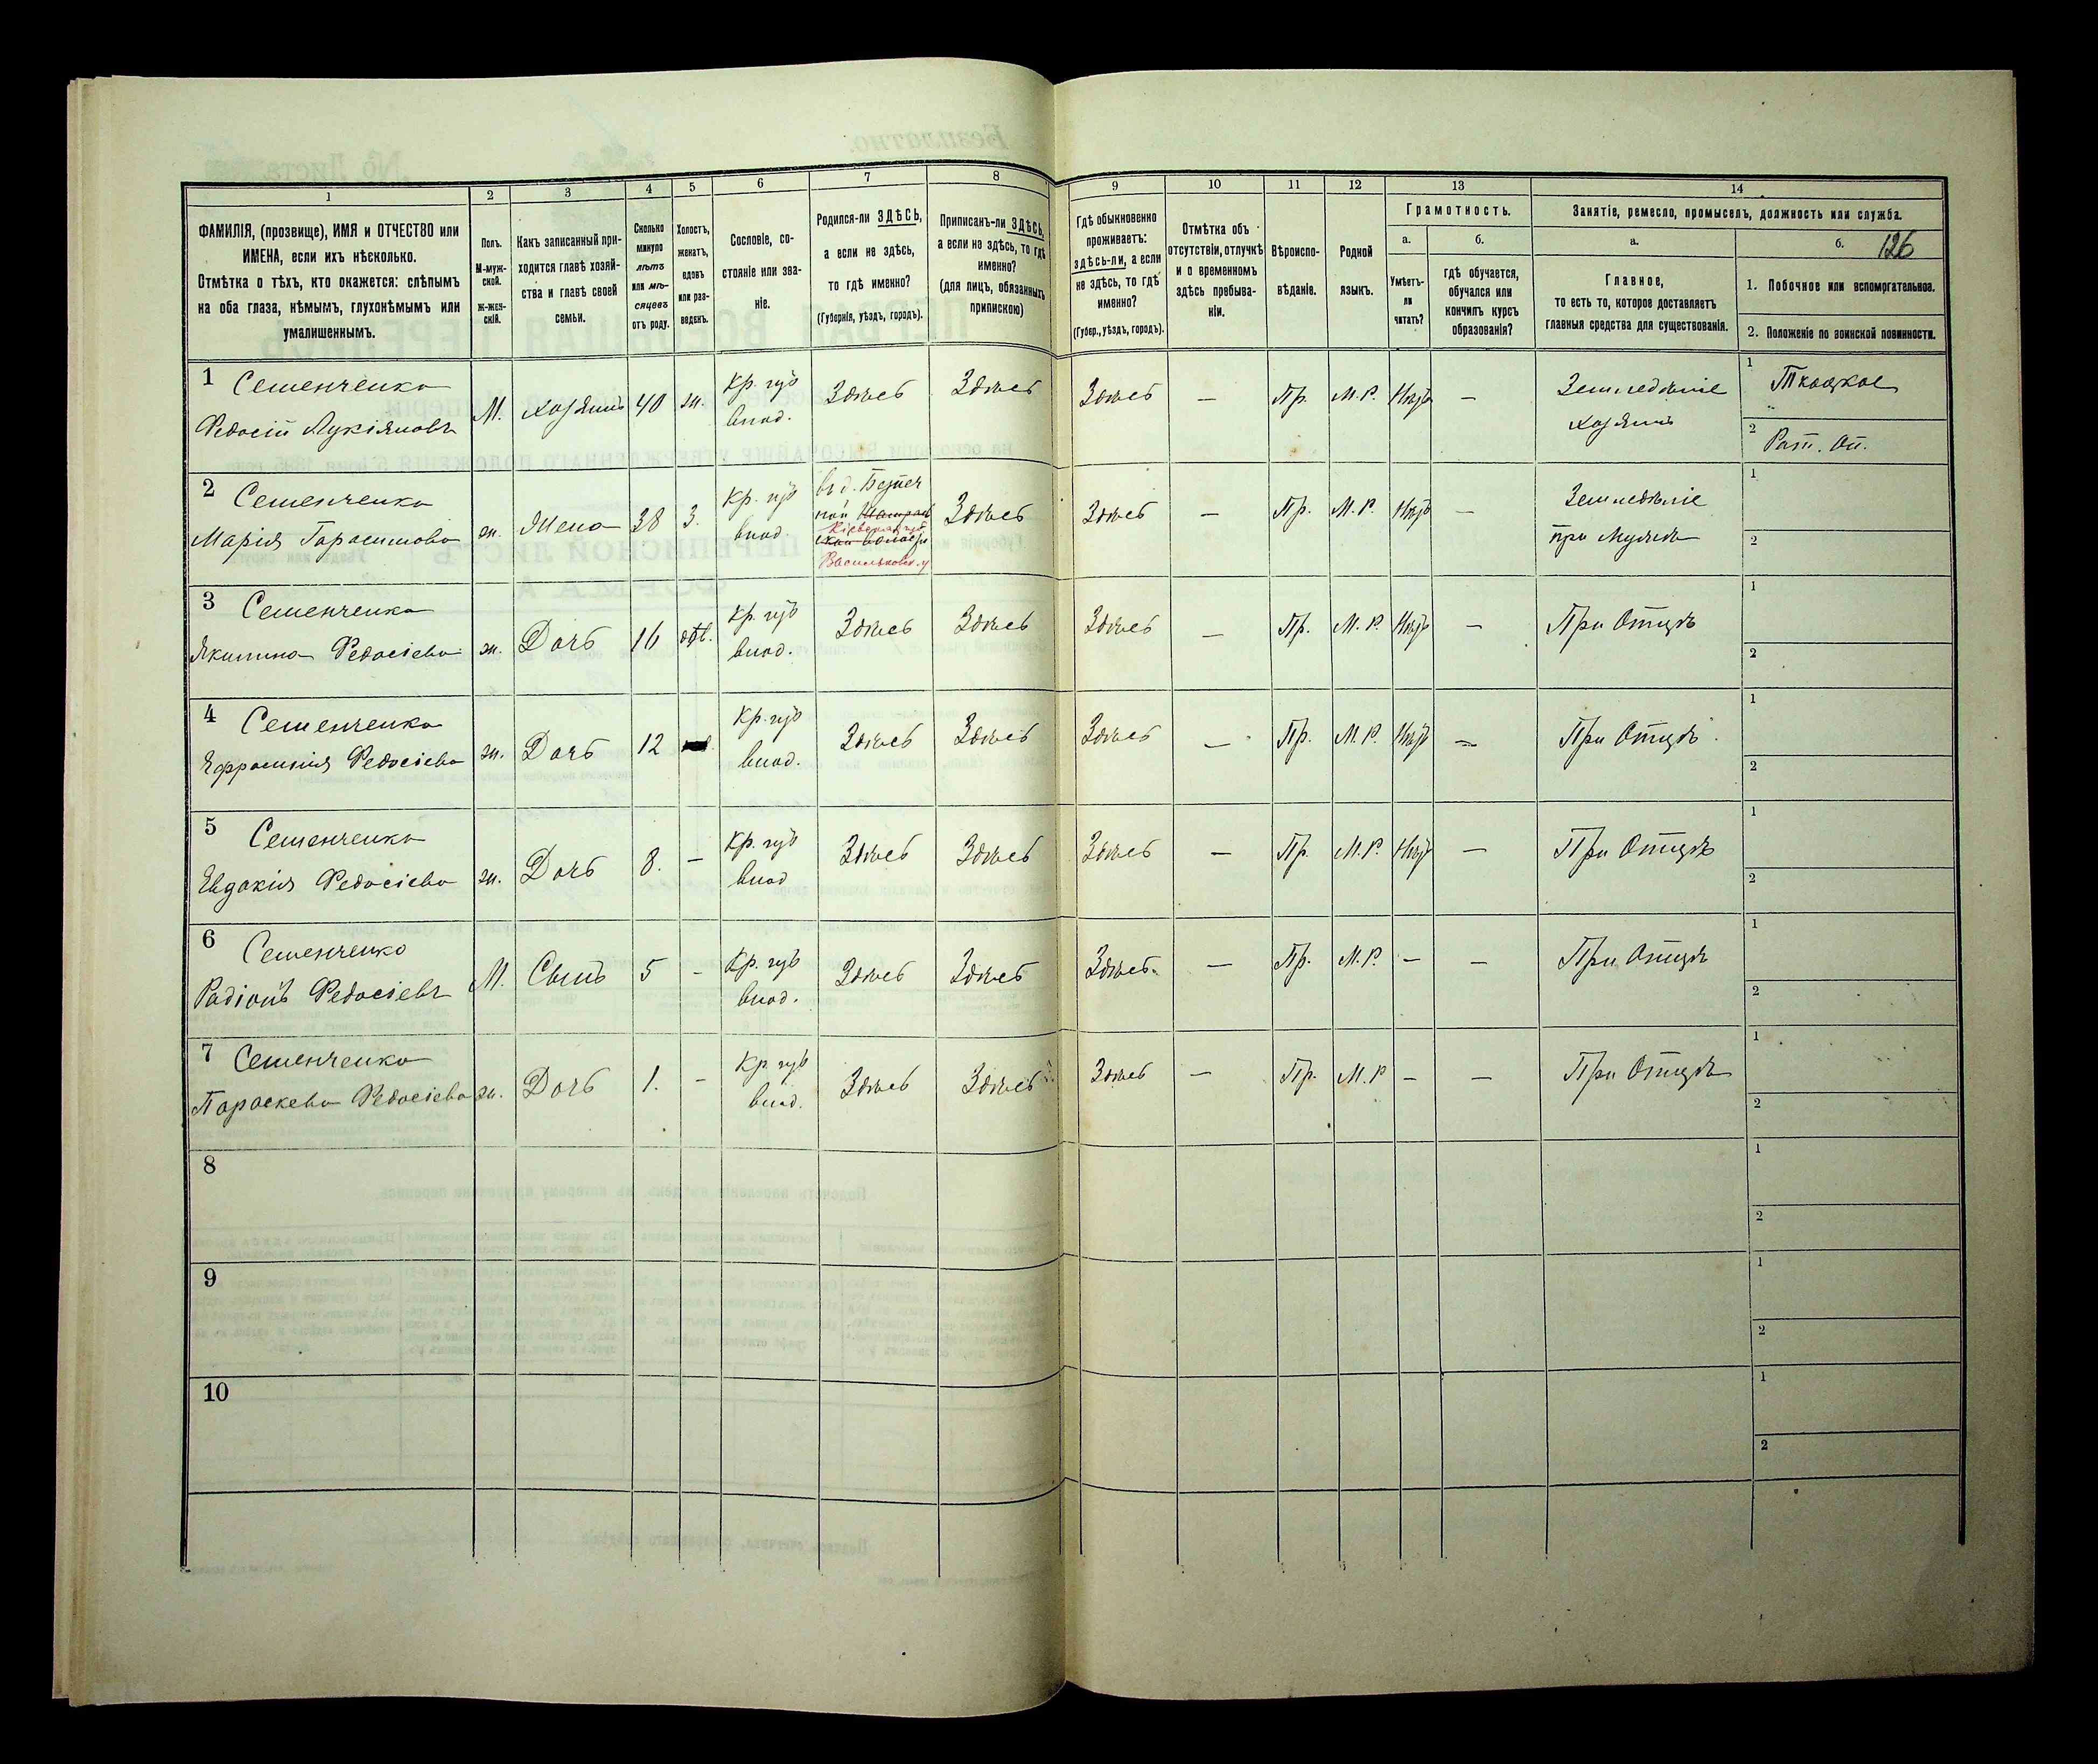 1 2 3 4 5 6 7 8 9 10 11 12 13 14
ФАМИЛІЯ, (прозвище), ИМЯ и ОТЧЕСТВО или
ИМЕНА, если ихъ нѣсколько.
Отмѣтка о тѣхъ, кто окажется: слѣпымъ
на оба глаза, нѣмымъ, глухонѣмымъ или
умалишеннымъ.
Полъ.
М-муж-
ской.
ж-жен-
скій.
Какъ записанный при-
ходится главѣ хозяй-
ства и главѣ своей
семьи.
Сколько
минуло
лѣтъ
или мѣ-
сяцевъ
отъ роду.
Холостъ,
женатъ,
вдовъ
или раз-
веденъ.
Сословіе, со-
стояніе или зва-
ніе.
Родился-ли ЗДѢСЬ,
а если не здѣсь,
то гдѣ именно?
(Губернія, уѣздъ, городъ).
Приписанъ-ли ЗДѢСЬ,
а если не здѣсь, то гдѣ
именно?
(для лицъ, обязанныхъ
припискою)
Гдѣ обыкновенно
проживаетъ:
здѣсь-ли, а если
не здѣсь, то гдѣ
именно?
(Губер., уѣздъ, городъ).
Отмѣтка объ
отсутствіи, отлучкѣ
и о временномъ
здѣсь пребыва-
ніи.
Вѣроиспо-
вѣданіе.
Родной
языкъ.
Грамотность.
а.
Умѣетъ-
ли
читать?
б.
гдѣ обучается,
обучался или
кончилъ курсъ
образованія?
Занятіе, ремесло, промыселъ, должность или служба.
а.
Главное,
то есть то, которое доставляетъ
главныя средства для существованія.
б. 126
1. Побочное или вспомогательное.
2. Положеніе по воинской повинности.
1 Семенченко
Федосій Лукіяновъ
М. хозяинъ 40 ж. Кр. губ
влад. Здѣсь Здѣсь Здѣсь — Пр. М.Р. Нѣтъ —
Земледѣліе
хозяинъ
1 Ткацкое
2 Рат. Оп.
2 Семенченко
Марія Гарасимова
ж. Жена 38 З. Кр. губ
влад
въ д. Безпеч
ной
Кіевская губ
Васильковск. у
Здѣсь Здѣсь — Пр. М.Р. Нѣтъ —
Земледѣліе
при Мужѣ
1
2
3 Семенченко
Якилина Федосіева
ж. Дочь 16 дѣв. Кр. губ
влад. Здѣсь Здѣсь Здѣсь — Пр. М.Р. Нѣтъ — При Отцѣ
1
2
4 Семенченко
Ефросинія Федосіева
ж. Дочь 12 Кр. губ
влад. Здѣсь Здѣсь Здѣсь — Пр. М.Р. Нѣтъ — При Отцѣ
1
2
5 Семенченко
Евдокія Федосіева
ж. Дочь 8. — Кр. губ
влад Здѣсь Здѣсь Здѣсь — Пр. М.Р. Нѣтъ — При Отцѣ
1
2
6 Семенченко
Радіонъ Федосіевъ
М. Сынъ 5 — Кр. губ
влад. Здѣсь Здѣсь Здѣсь — Пр. М.Р. — — При Отцѣ
1
2
7 Семенченко
Параскева Федосіева
ж. Дочь 1. — Кр губ
влад. Здѣсь Здѣсь Здѣсь — Пр. М.Р — — При Отцѣ
1
2
8
1
2
9
1
2
10
1
2